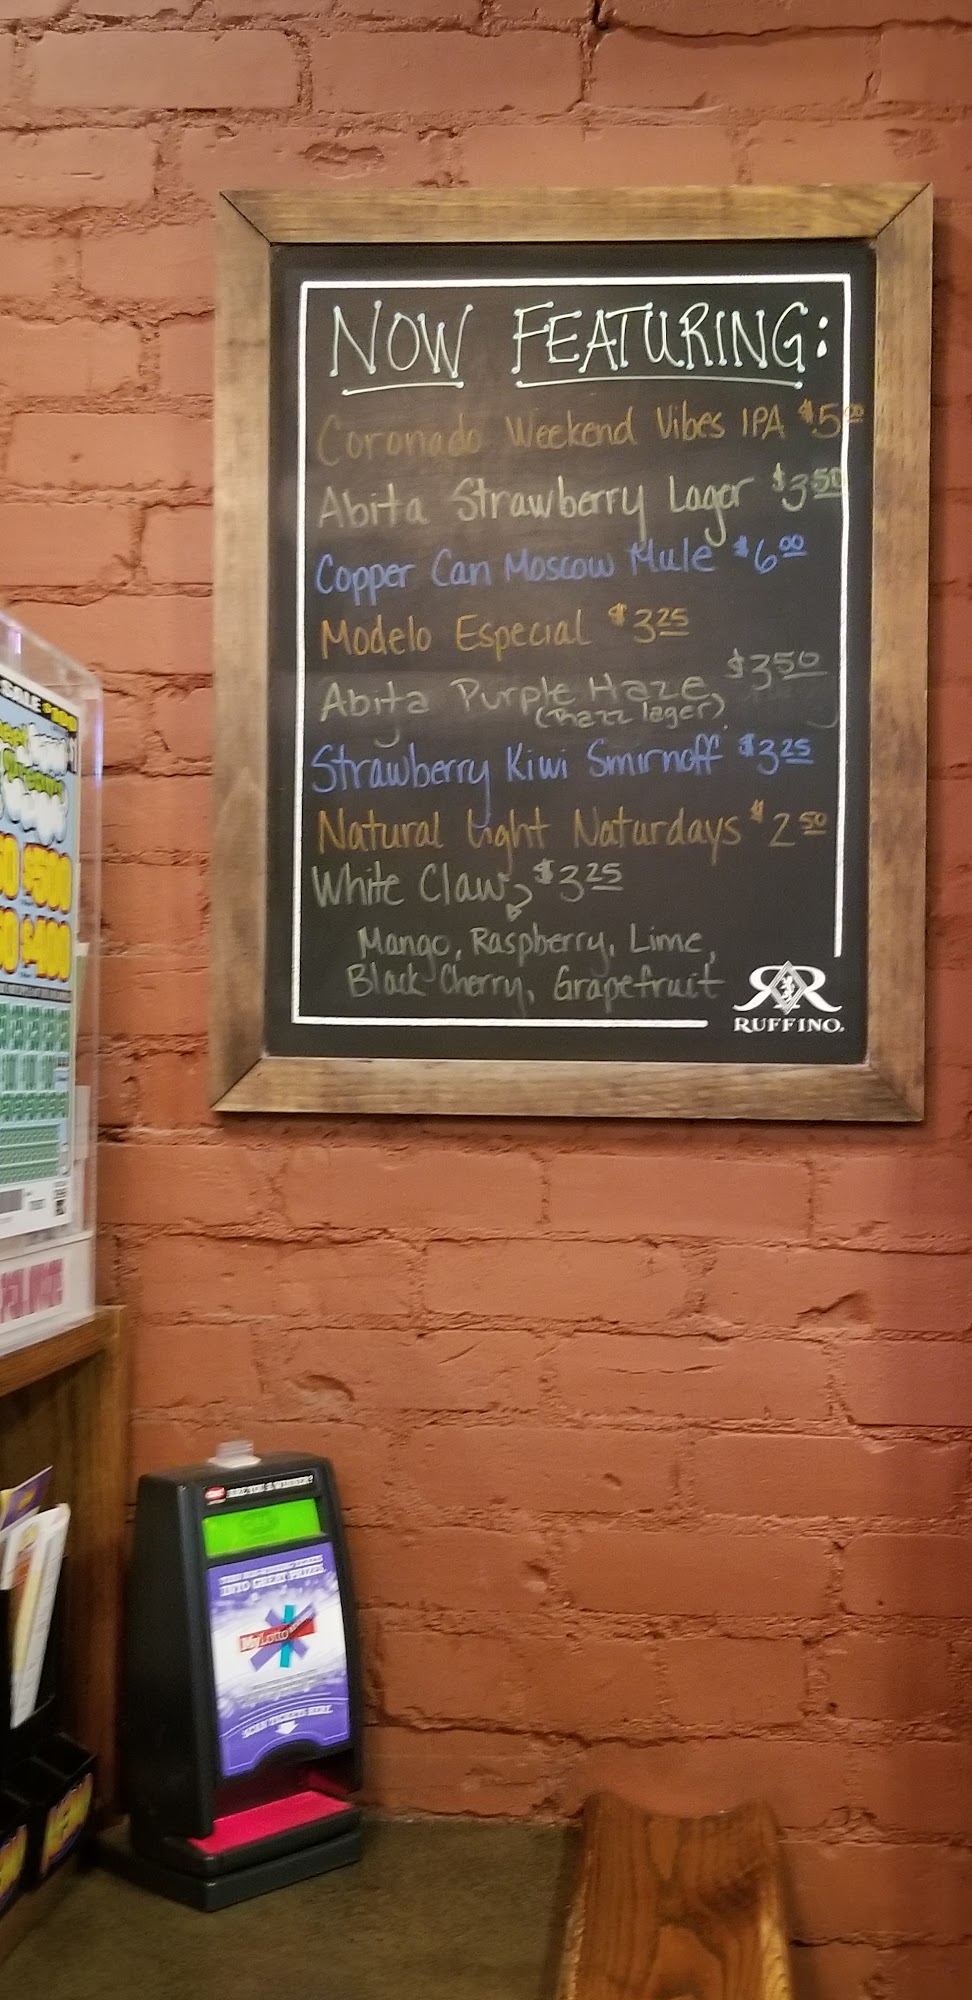 NOW FEATURING:
Coronado Weekend Vibes IPA $5.00
Abita Strawberry Lager $3.50
Copper Can Moscow Mule $6.00
Modelo Especial $3.25
Abita Purple Haze, $3.50
(razz lager)
Strawberry Kiwi Smirnoff $3.25
Natural Light Naturdays $2.50
White Claw $3.25
Mango, Raspberry, Lime,
Black Cherry, Grapefruit
RUFFINO.
SALE $100
$500
$400
INTO GREAT PRIZES
MyLotto
SCAN TICKETS HERE